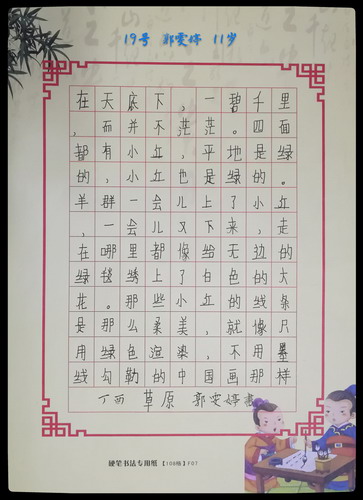 19号 郭雯婷 11岁
在天底下,一碧千里
,而并不茫茫。四面
都有小丘,平地是绿
的,小丘也是绿的。
羊群一会儿上了小丘
,一会儿又下来,走
在哪里都像给无边的
绿毯绣上了白色的大
花。那些小丘的线条
是那么柔美,就像只
用绿色渲染,不用墨
线勾勒的中国画那样
丁酉 草原 郭雯婷书
硬笔书法专用纸【108格】F07